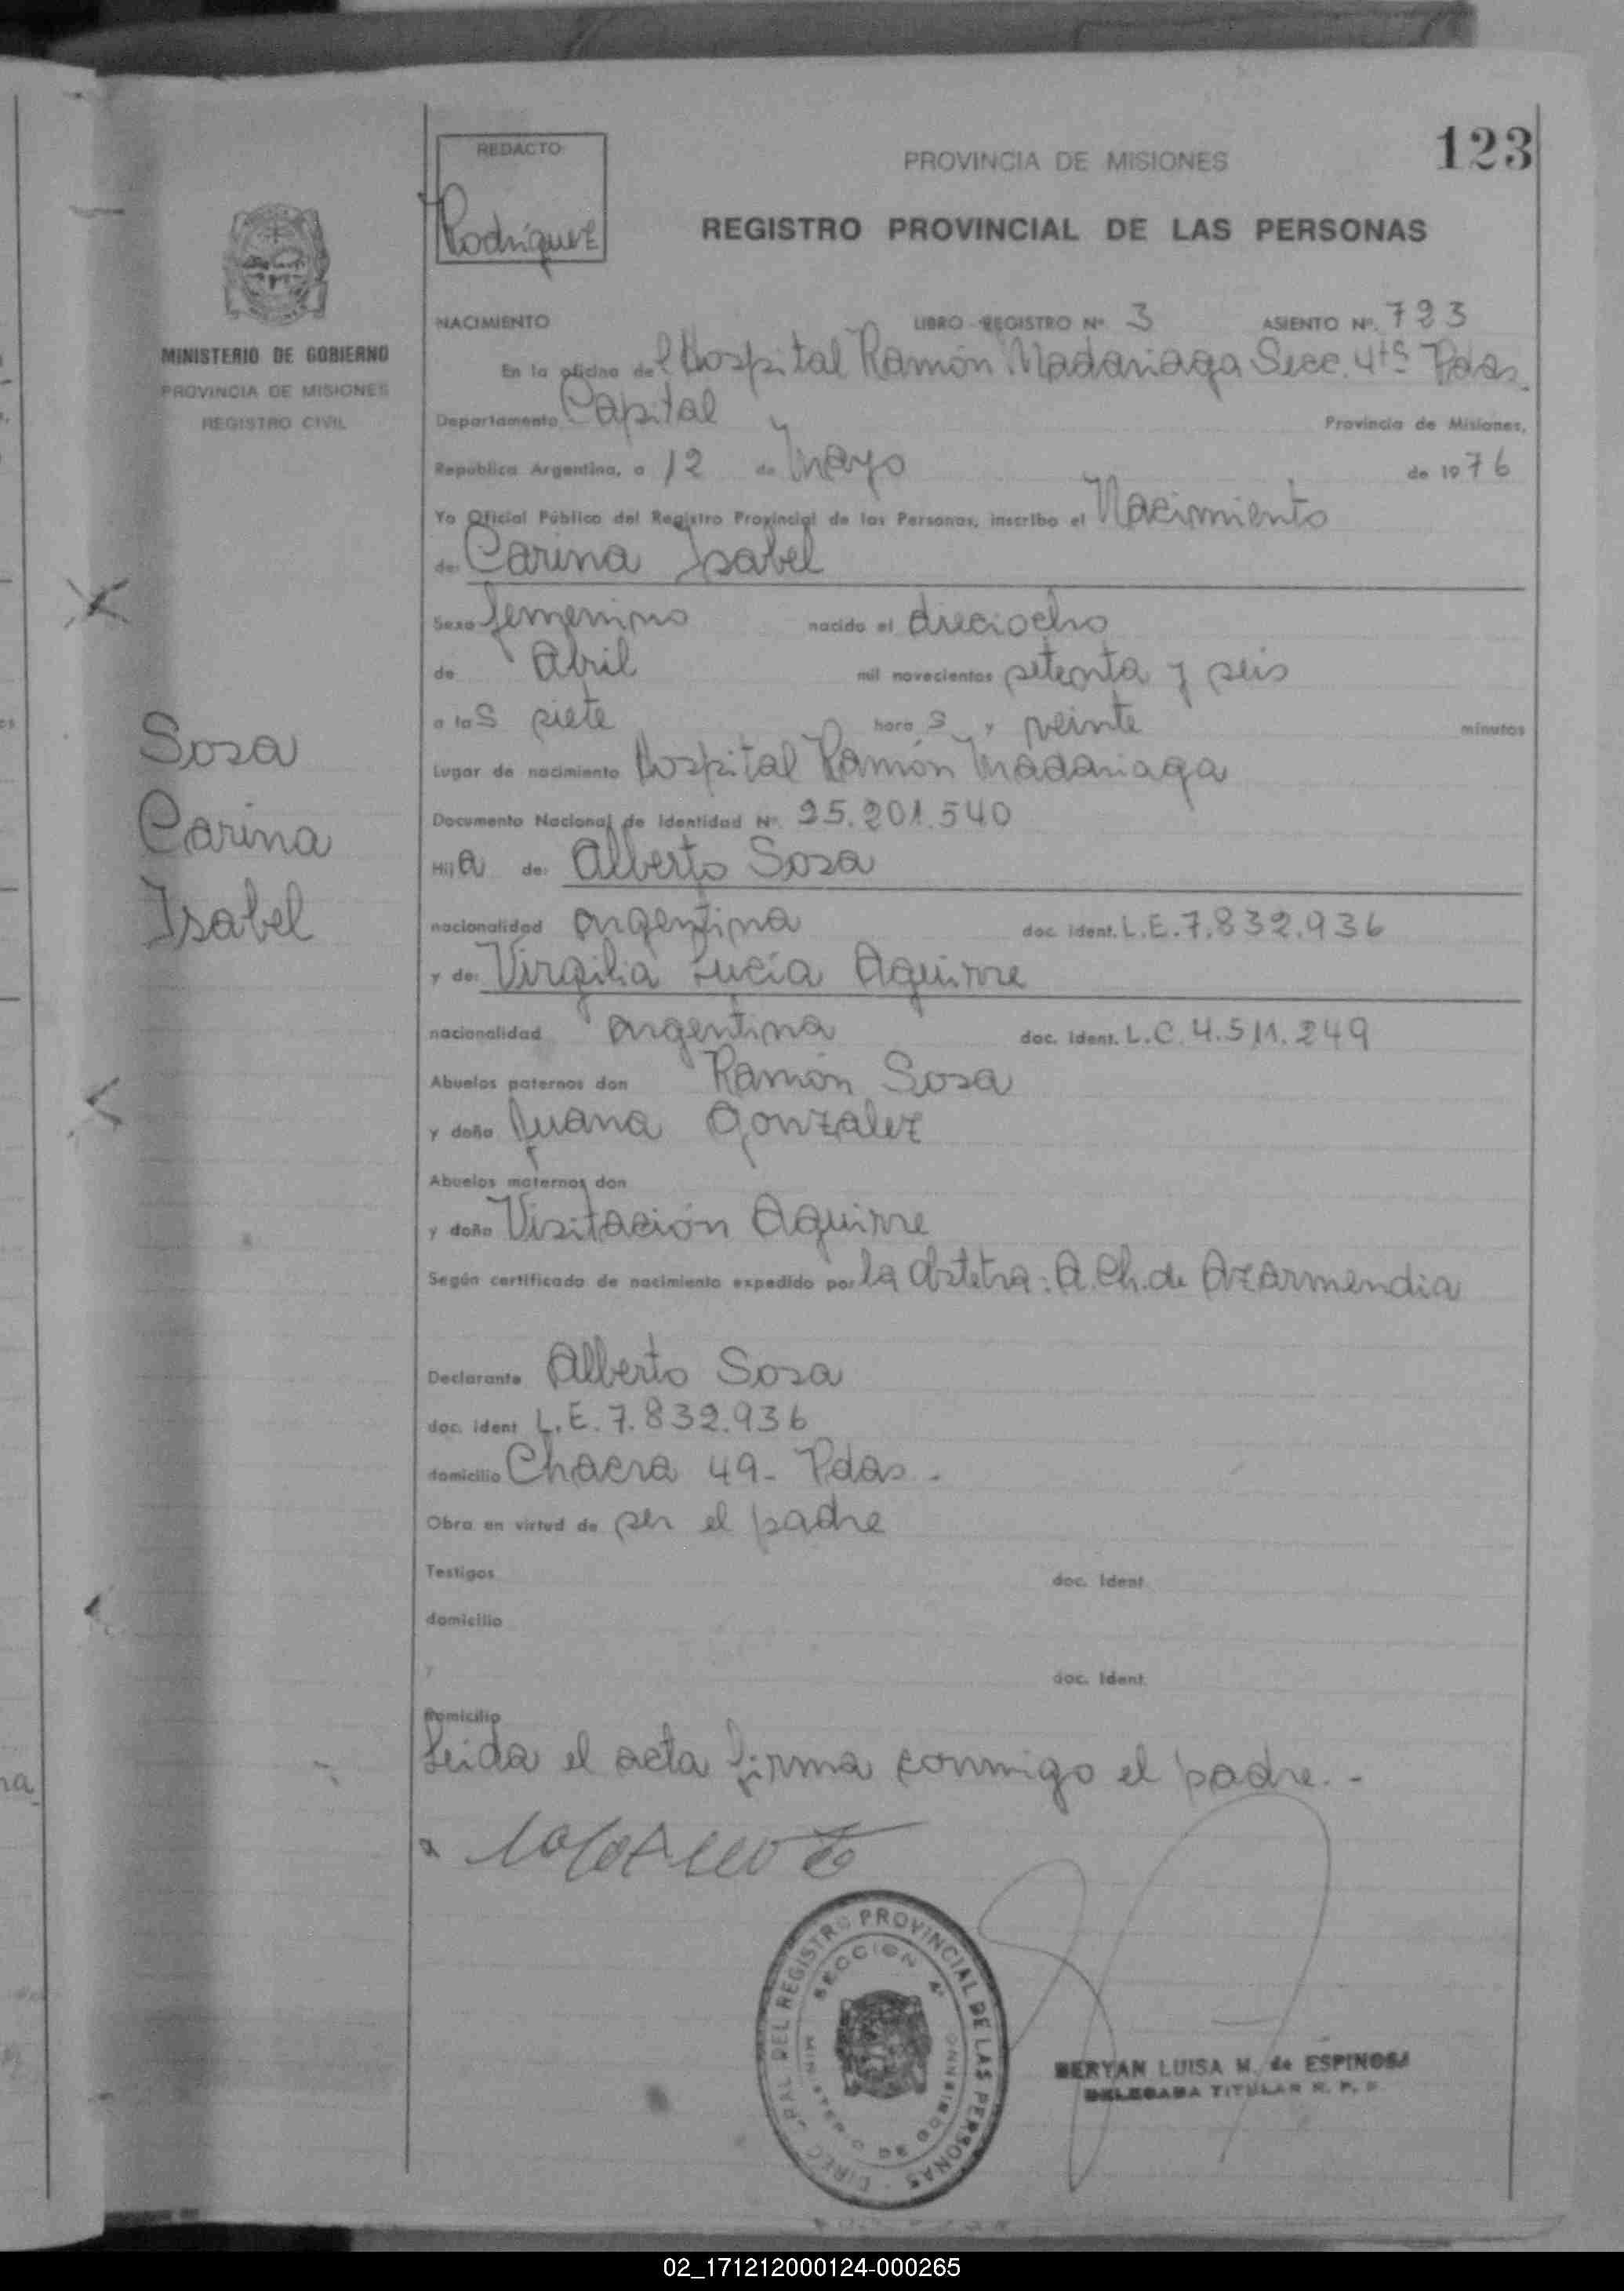 123
REDACTO
Rodríguez
PROVINCIA DE MISIONES
REGISTRO PROVINCIAL DE LAS PERSONAS
MINISTERIO DE GOBIERNO
PROVINCIA DE MISIONES
REGISTRO CIVIL
Sosa
Carina
Isabel
NACIMIENTO LIBRO REGISTRO Nº 3 ASIENTO Nº. 723
En la oficina del Hospital Ramón Madariaga Secc. 4ta Pdas.
Departamento Capital Provincia de Misiones,
República Argentina, a 12 de Mayo de 1976
Yo Oficial Público del Registro Provincial de las Personas, inscribo el Nacimiento
de: Carina Isabel
Sexo femenino nacido el dieciocho
de Abril mil novecientos setenta y seis
a las siete horas y veinte minutos
Lugar de nacimiento Hospital Ramón Madariaga
Documento Nacional de Identidad Nº 25.201.540
Hija de: Alberto Sosa
nacionalidad argentina doc. ident. L.E. 7.832.936
y de: Virgilia Lucía Aguirre
nacionalidad argentina doc. ident. L.C. 4.511.249
Abuelos paternos don Ramón Sosa
y doña Juana Gonzalez
Abuelos maternos don
y doña Visitación Aguirre
Según certificado de nacimiento expedido por la obstetra: A. Ch. de Azarmendia
Declarante Alberto Sosa
doc. ident L.E. 7.832.936
domicilio Chacra 49 - Pdas.
Obra en virtud de ser el padre
Testigos doc. Ident
domicilio
y doc. Ident
Domicilio
Leida el acta firma conmigo el padre. -
DIREC. GRAL. DEL REGISTRO PROVINCIAL DE LAS PERSONAS
SECCION 4ª
MINISTERIO DE GOBIERNO
BERYAN LUISA M. de ESPINOSA
DELEGADA TITULAR R. P. P.
02_171212000124-000265